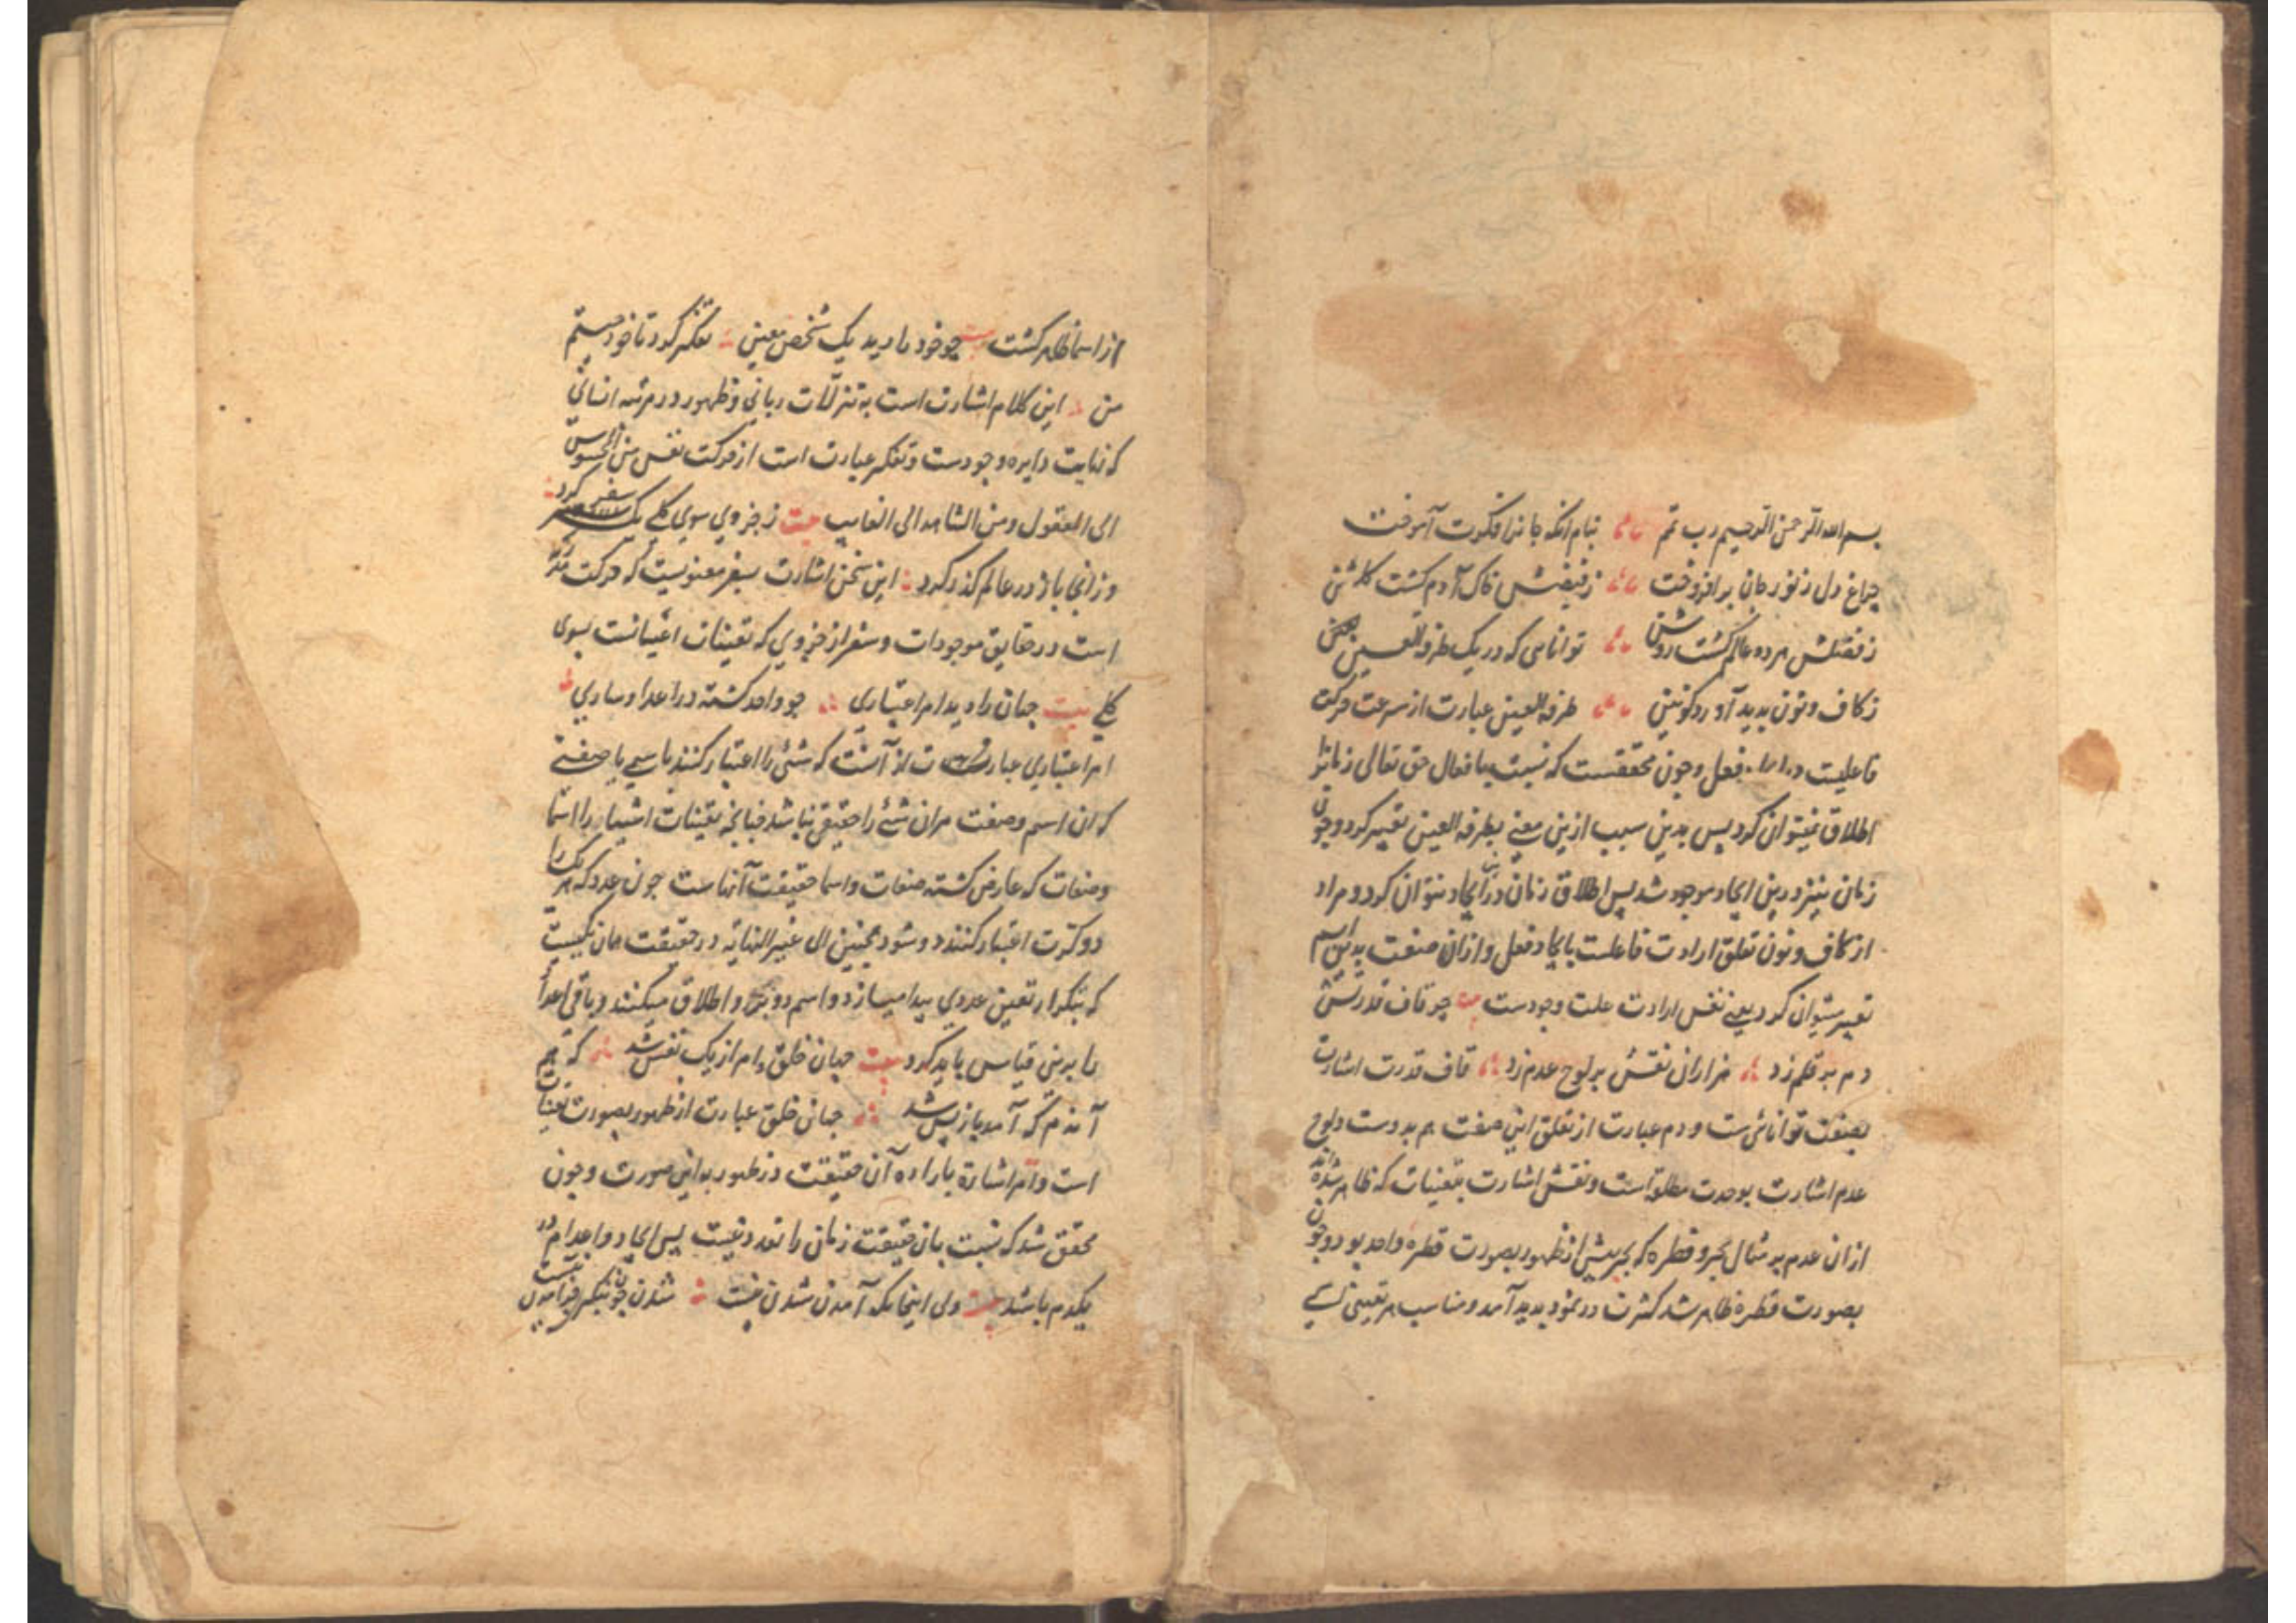 بسم الله الرحمن الرحیم رب تمم بنام آنکه جانرا فکرت آموخت
چراغ دل ز نور جان برافروخت ز فیضش خاک آدم گشت گلشن
ز فضلش هر دو عالم گشت روشن توانایی که در یک طرفة العین
ز کاف و نون پدید آورد کونین طرفة العین عبارت از سرعت حرکت
فاعلیت در فعل و چون محققست که نسبت بافعال حق تعالی زمانرا
اطلاق نمیتوان کرد پس بدین سبب ازین معنی بطرفة العین تعبیر کرد و چون
زمان نیز درین ایجاد موجود شد پس اطلاق زمان درین ایجاد نتوان کرد و مراد
از کاف و نون تعلق ارادت فاعلست بایجاد فعل و ازان صفت بدین اسم
تعبیر میتوان کرد یعنی نفس ارادت علت وجودست بیت چو قاف قدرتش
دم بر قلم زد هزاران نقش بر لوح عدم زد قاف قدرت اشارت
بصفت توانائی ست و دم عبارت از تعلق این صفت هم بدوست و لوح
عدم اشارت بوحدت مطلق است و نقش اشارت بتعینات که ظاهر شده اند
ازان عدم بر مثال بحر و قطره که بحر پیش از ظهور بصورت قطره واحد بود و چون
بصورت قطره ظاهر شد کثرت در نمود پدید آمد و مناسب هر تعینی اسمی
از اسما ظاهر گشت بیت چو خود را دید یک شخص معین تفکر کرد تا خود چیستم
من این کلام اشارت است به تنزلات ربانی و ظهور در مرتبه انسانی
که نهایت دایره وجودست و تفکر عبارت است از حرکت نفس من المحسوس
الی المعقول و من الشاهد الی الغایب بیت ز جزوی سوی کلی یک سفر کرد
وز انجا باز در عالم گذر کرد این سخن اشارت بسفر معنویست که حرکت
است در حقایق موجودات و سفر از جزوی که تعینات اشیاست بسوی
کلی بیت جهان را دید امر اعتباری چو واحد گشته در اعداد ساری
امر اعتباری عبارت از آنست که شئی را اعتبار کنند باسمی یا صفتی
که ان اسم و صفت مران شئی را حقیقی نباشد چنانچه تعینات اشیا را اسما
و صفات که عارض گشته صفات و اسما حقیقت آنهاست چون عدد که هر یک را
دو کرت اعتبار کنند دو شود همچنین الی غیر النهایه در حقیقت همان یکیست
که بتکرار تعین عددی پیدا میسازد و اسم دو برو اطلاق میکنند و باقی اعداد
را برین قیاس باید کرد بیت جهان خلق و امر از یک نفس شد که هم
آندم که آمد باز پس شد جهان خلق عبارت از ظهور بصورت تعینات
است و امر اشارة باراده آن حقیقت در ظهور بداین صورت و چون
محقق شد که نسبت بان حقیقت زمان را تعدد نیست پس ایجاد و اعدام در
یکدم باشد بیت ولی اینجایکه آمدن شدن نیست شدن چون بنگری جز آمدن نیست